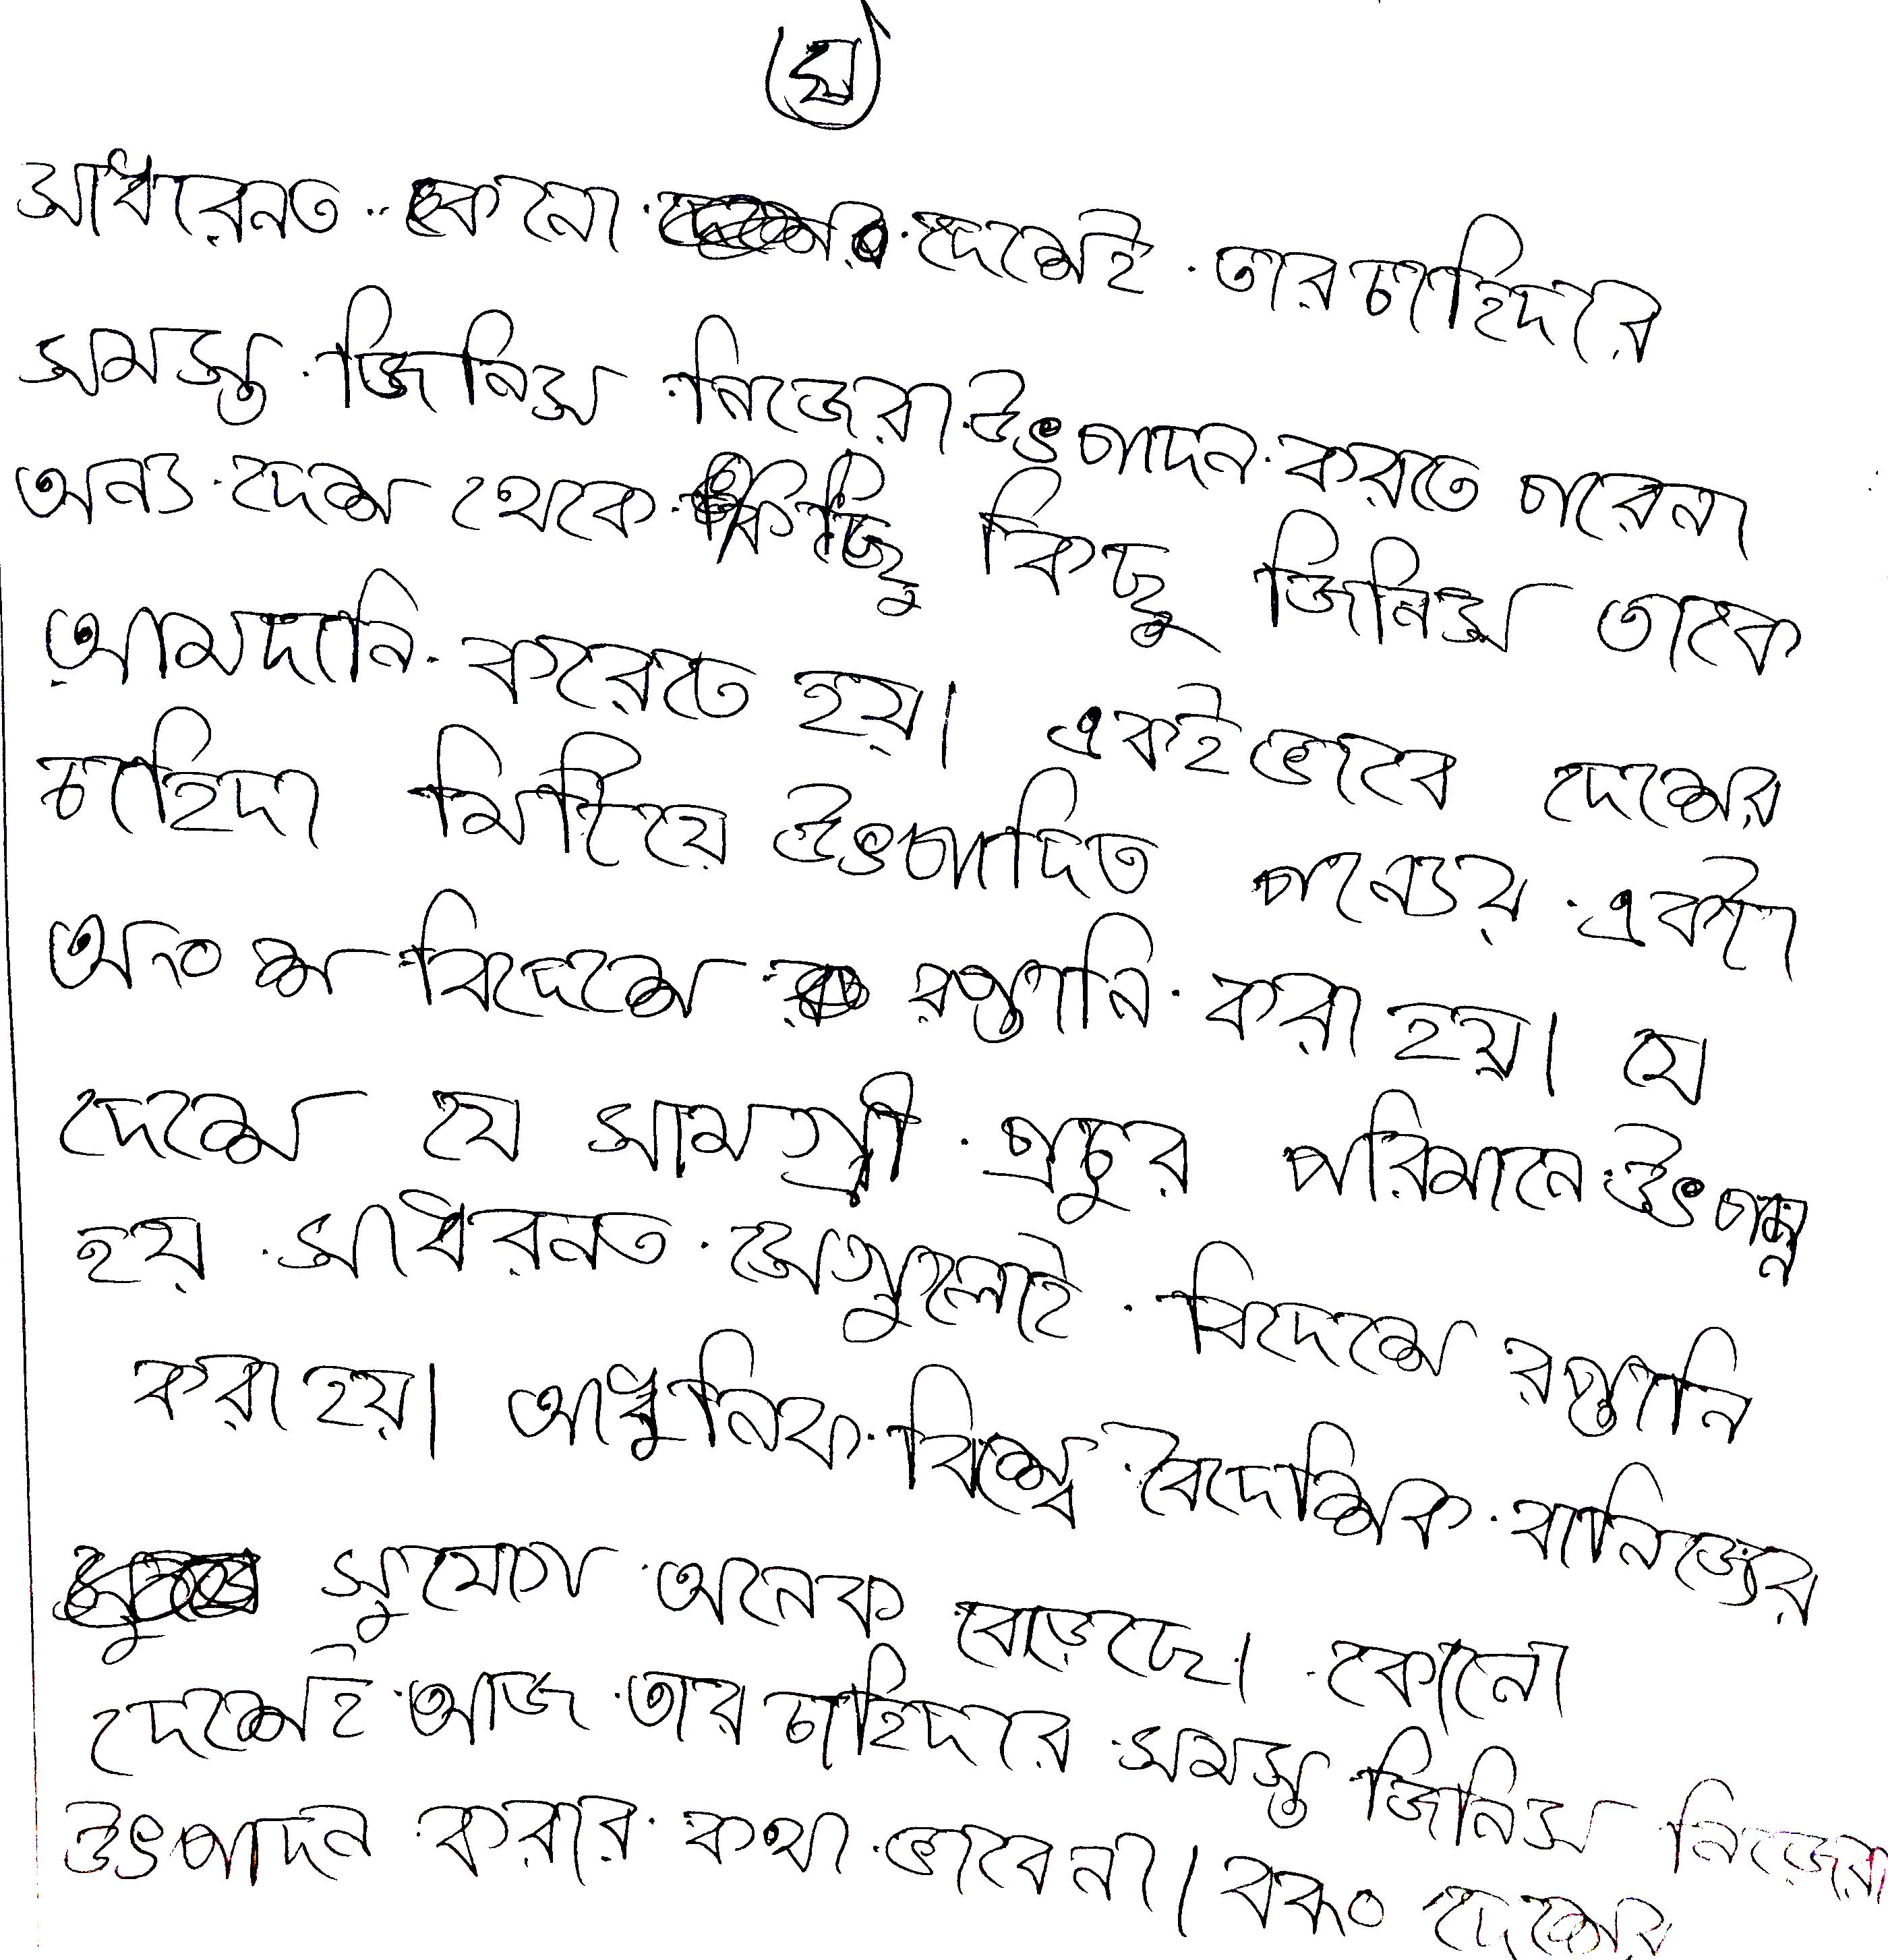 (ঘ)
সাধারনত কোনো দেশেই তার চাহিদার
সমস্ত জিনিস নিজেরা উৎপাদন করতে পারেনা
অন্য দেশ থেকে কিছু জিনিস তাকে
আমদানি করতে হয়। একইভাবে দেশের
চাহিদা মিটিয়ে উৎপাদিত পন্যের একটা
অংশ বিদেশে রপ্তানি করা হয়। যে
দেশে যে সামগ্রী প্রচুর পরিমানে উৎপন্ন
হয় সাধারনত সেগুলোই বিদেশে রপ্তানি
করা হয়। আধুনিক বিশ্বে বৈদেশিক বানিজ্যের
সুযোগ অনেক বেড়েছে। কোনো
দেশেই আজ তার চাহিদার সমস্ত জিনিস নিজেরা
উৎপাদন করার কথা ভাবেনা। বরং দেশের